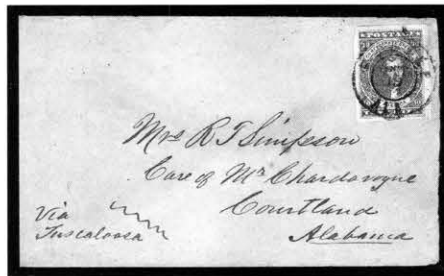 POSTAGE
Mrs R T Simpson
Care of Mr Chardavoyne
Courtland
Alabama
Via
Tuscaloosa